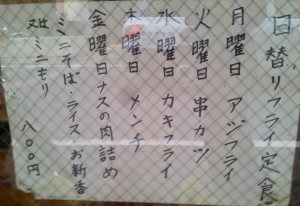 日替りフライ定食
月曜日 アジフライ
火曜日 串カツ
水曜日 カキフライ
木曜日 メンチ
金曜日ナスの肉詰め
ミニそば・ライス お新香
又は ミニモリ 八〇〇円